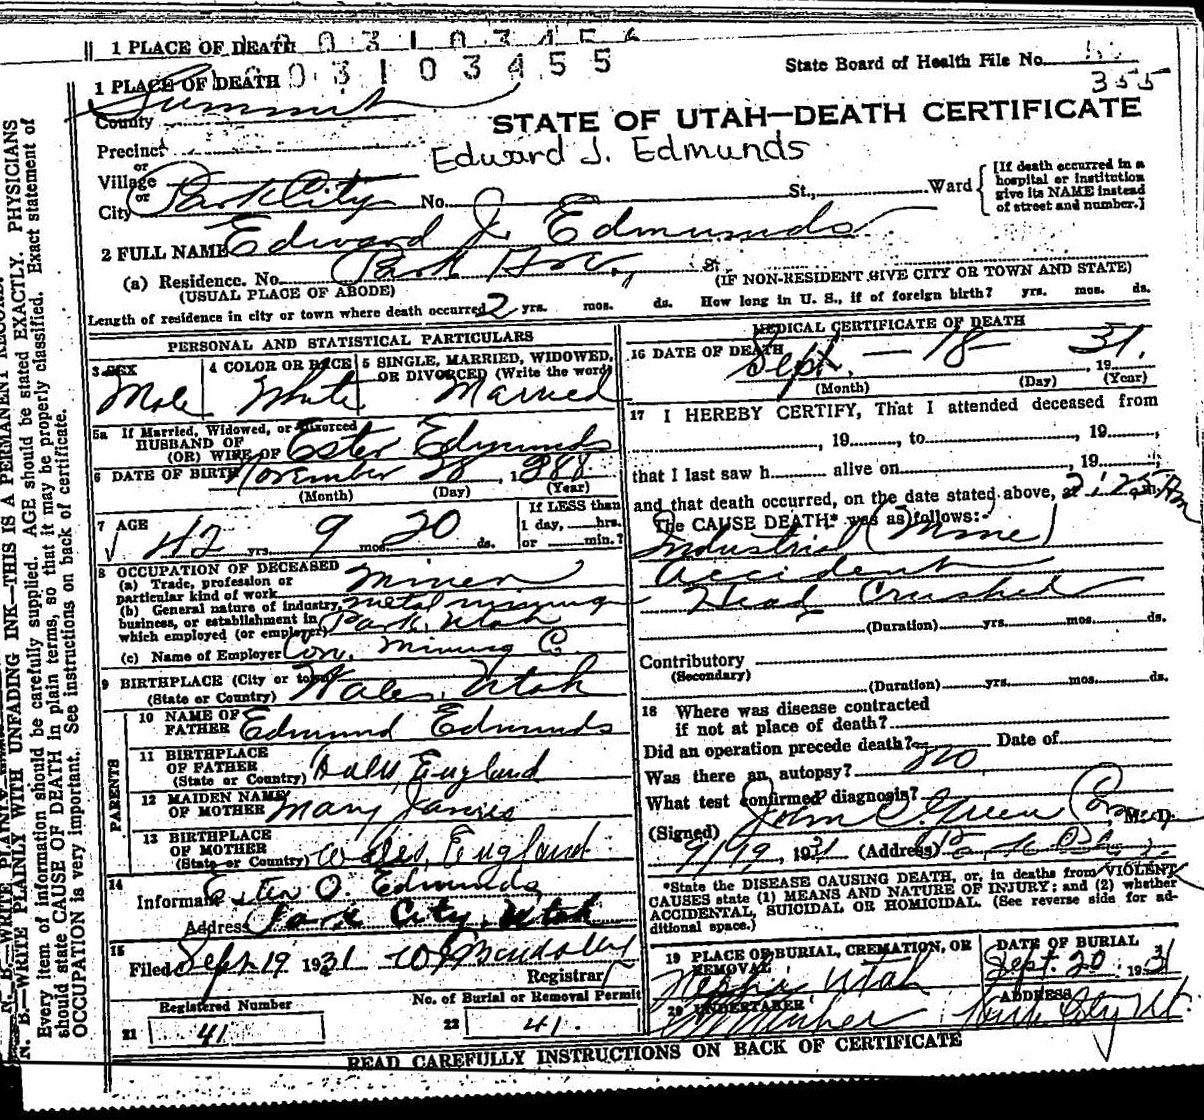 1 PLACE OF DEATH 0 0 3 1 0 3 4 5 6
1 PLACE OF DEATH 0 0 3 1 0 3 4 5 5
State Board of Health File No.
355
Summit
County
STATE OF UTAH—DEATH CERTIFICATE
Precinct
or
Edward J. Edmunds
Village
or
City Park City No. St., Ward
[If death occurred in a
hospital or institution
give its NAME instead
of street and number.]
2 FULL NAME Edward J. Edmunds
(a) Residence. No. Park St.
(USUAL PLACE OF ABODE)
(IF NON-RESIDENT GIVE CITY OR TOWN AND STATE)
Length of residence in city or town where death occurred 2 yrs. mos. ds. How long in U. S., if of foreign birth? yrs. mos. ds.
PERSONAL AND STATISTICAL PARTICULARS
3 SEX
Male
4 COLOR OR RACE
White
5 SINGLE, MARRIED, WIDOWED,
OR DIVORCED (Write the word)
Married
5a If Married, Widowed, or Divorced
HUSBAND OF
(OR) WIFE OF Ester Edmunds
6 DATE OF BIRTH November 28, 1888
(Month) (Day) (Year)
7 AGE
42 yrs. 9 mos. 20 ds.
If LESS than
1 day, hrs.
or min.?
8 OCCUPATION OF DECEASED
(a) Trade, profession or
particular kind of work Miner
(b) General nature of industry,
business, or establishment in
which employed (or employer) metal mining
Park, Utah
(c) Name of Employer Con. Mining C
9 BIRTHPLACE (City or town)
(State or Country) Wales, Utah
PARENTS
10 NAME OF
FATHER Edmund Edmunds
11 BIRTHPLACE
OF FATHER
(State or Country) Wales, England
12 MAIDEN NAME
OF MOTHER Mary James
13 BIRTHPLACE
OF MOTHER
(State or Country) Wales, England
14
Informant Ester O. Edmunds
Address Park City, Utah
15
Filed Sept. 19 1931
Registrar
Registered Number
21 41
No. of Burial or Removal Permit
22 41.
MEDICAL CERTIFICATE OF DEATH
16 DATE OF DEATH
Sept. — 18 — 31.
, 19
(Month) (Day) (Year)
17 I HEREBY CERTIFY, That I attended deceased from
, 19 , to , 19 ,
that I last saw h alive on , 19 ,
and that death occurred, on the date stated above, at 2:25 Am
The CAUSE DEATH* was as follows:
Industrial (Mine)
accident
Head Crushed
(Duration) yrs. mos. ds.
Contributory
(Secondary)
(Duration) yrs. mos. ds.
18 Where was disease contracted
if not at place of death?
Did an operation precede death? Date of
Was there an autopsy? no
What test confirmed diagnosis?
(Signed) John C. Green M. D.
9/19, 1931 (Address)
*State the DISEASE CAUSING DEATH, or, in deaths from VIOLENT
CAUSES state (1) MEANS AND NATURE OF INJURY; and (2) whether
ACCIDENTAL, SUICIDAL OR HOMICIDAL. (See reverse side for ad-
ditional space.)
19 PLACE OF BURIAL, CREMATION, OR
REMOVAL
Nephi Utah
DATE OF BURIAL
Sept. 20 1931
20 UNDERTAKER
ADDRESS
Park City Ut.
READ CAREFULLY INSTRUCTIONS ON BACK OF CERTIFICATE
N. B.—WRITE PLAINLY WITH UNFADING INK—THIS IS A PERMANENT RECORD.
Every item of information should be carefully supplied. AGE should be stated EXACTLY. PHYSICIANS
should state CAUSE OF DEATH in plain terms, so that it may be properly classified. Exact statement of
OCCUPATION is very important. See instructions on back of certificate.